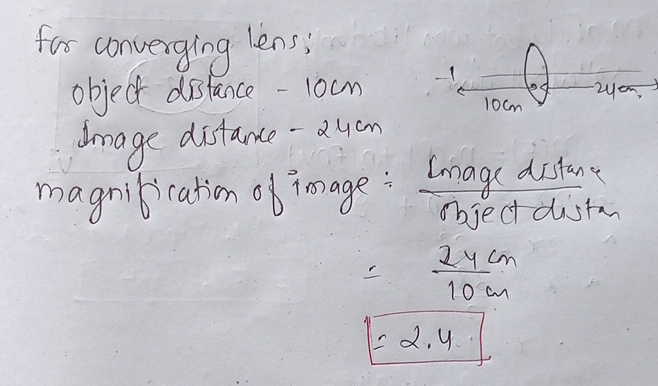 for converging lens;
object distance - 10cm
Image distance - 24cm
10cm
24cm
magnification of image : Image distance
object distan
= 24 cm
10 cm
= 2.4